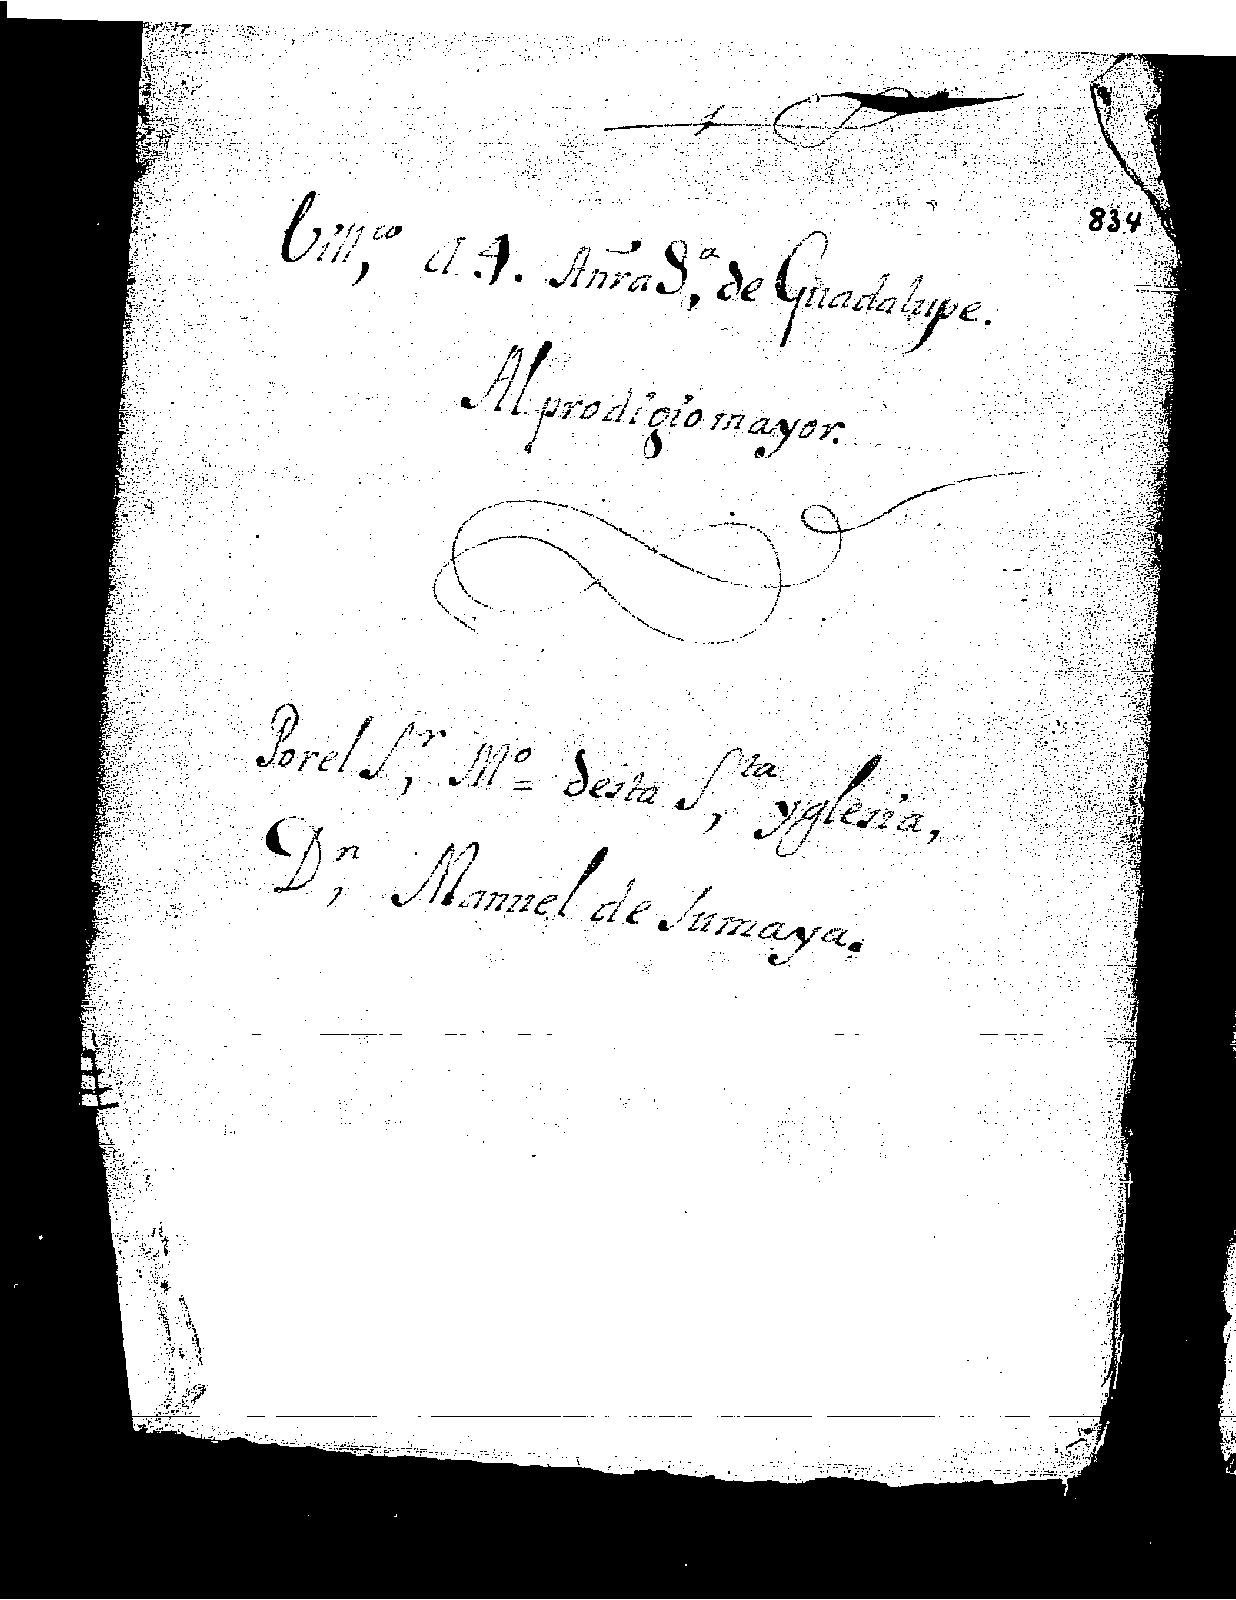 834
Vill,co A 4. A ñra S,a de Guadalupe.
Al prodigio mayor.
Por el S,r Mo desta S,ta yglesia,
D,n Manuel de Sumaya.